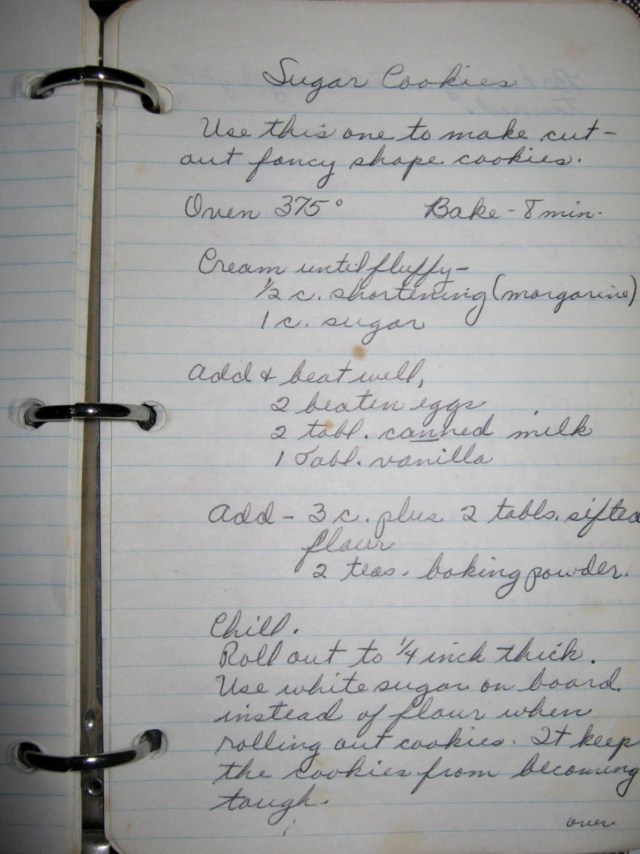 Sugar Cookies
Use this one to make cut-
out fancy shape cookies.
Oven 375° Bake - 8 min.
Cream until fluffy -
1/2 c. shortening (margarine)
1 c. sugar
Add & beat well,
2 beaten eggs
2 tabl. canned milk
1 Tabl. vanilla
Add - 3 c. plus 2 tabls. sifted
flour
2 teas. baking powder.
Chill.
Roll out to 1/4 inch thick.
Use white sugar on board
instead of flour when
rolling out cookies. It keep
the cookies from becoming
tough.
over